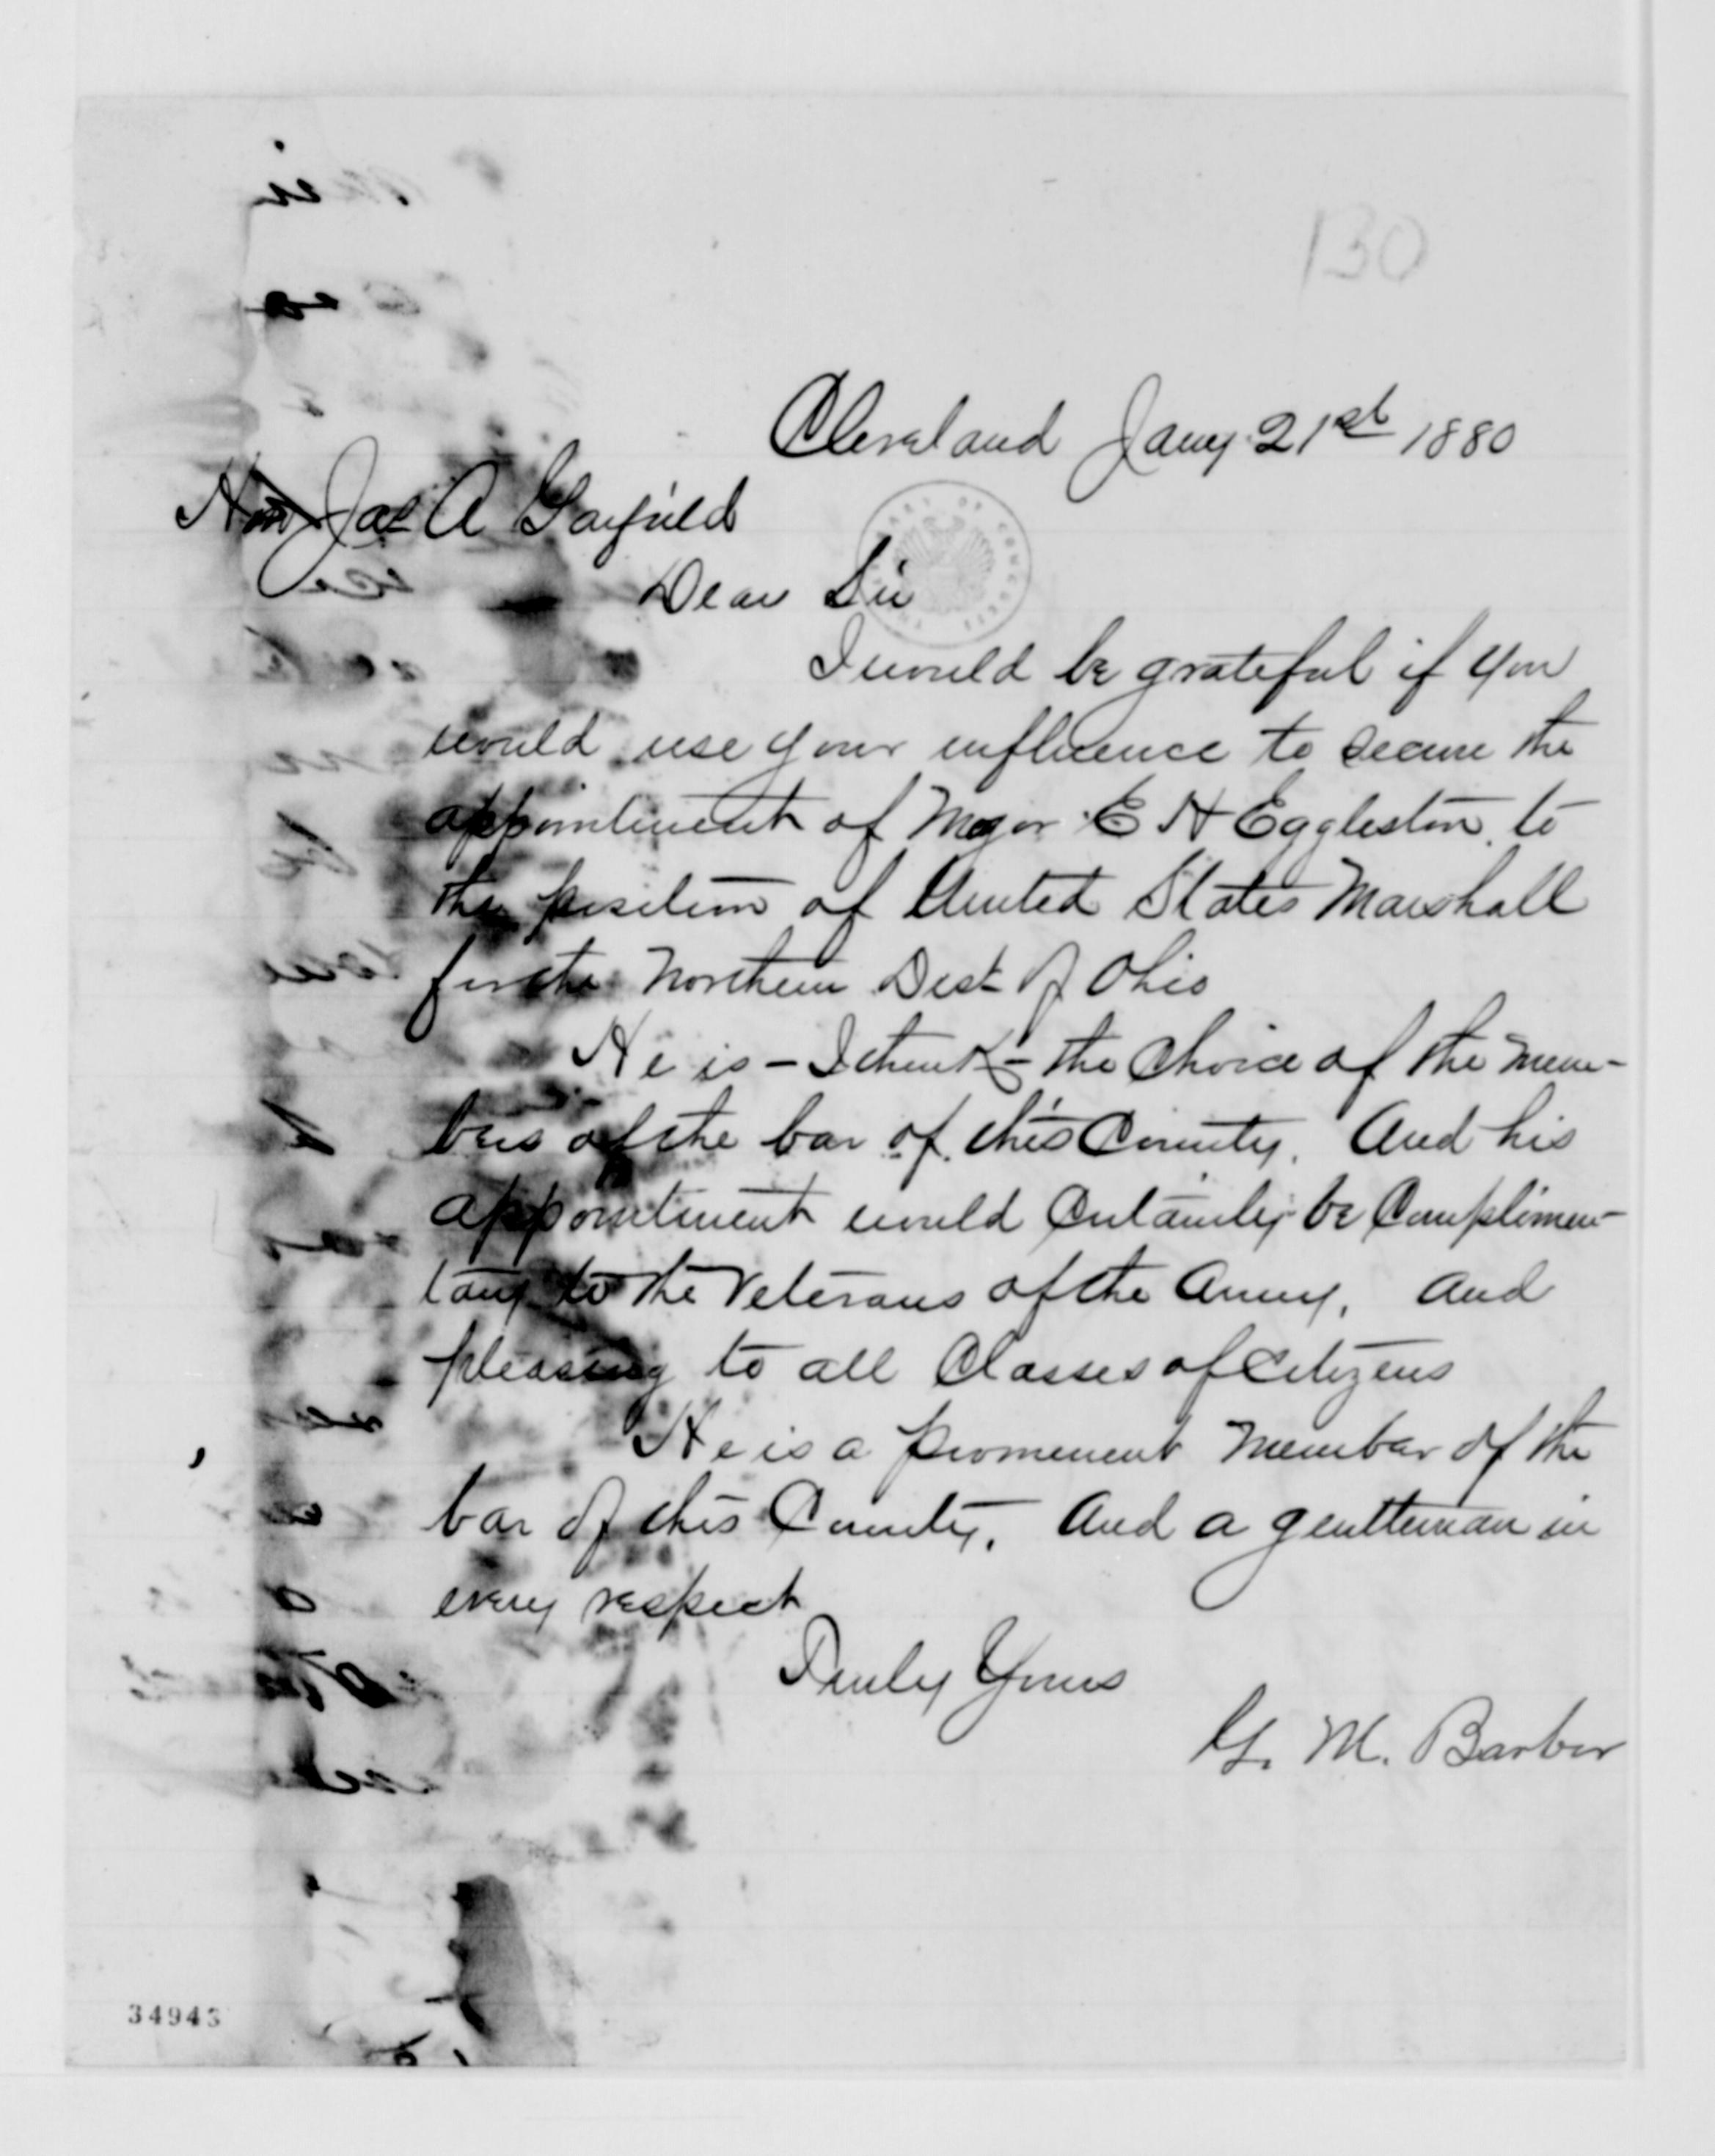 130
Cleveland Jany 21st 1880
Hon Jas A Garfield
Dear Sir
I would be grateful if you
would use your influence to secure the
appointment of Major E H Eggleston, to
the position of United States Marshall
for the Northern Dist of Ohio
He is - I think - the Choice of the mem-
bers of the bar of this County. And his
appointment would Certainly be Complimen-
tary to the Veterans of the Army, and
pleasing to all Classes of Citizens
He is a prominent member of the
bar of this County. And a gentleman in
every respect
Truly Yours
G. M. Barber
34943